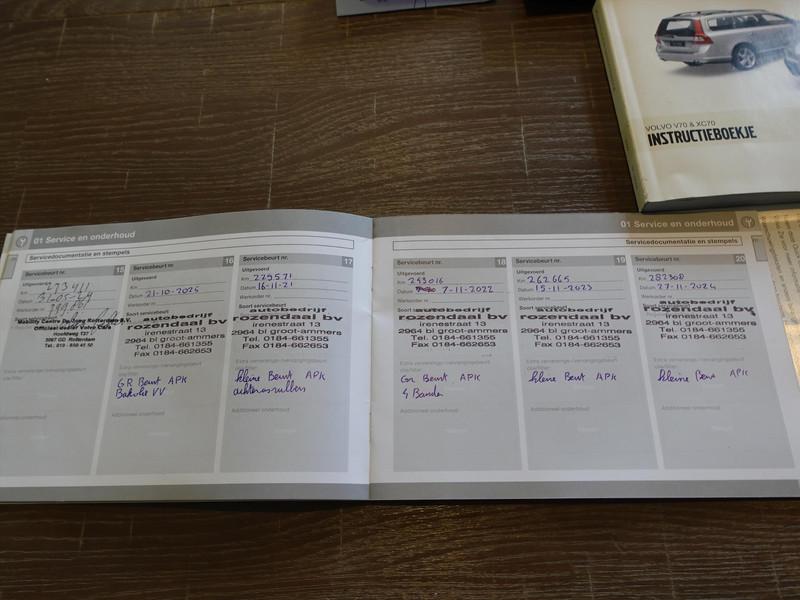 VOLVO V70 & XC70
INSTRUCTIEBOEKJE
01 Service en onderhoud
Servicedocumentatie en stempels
15
Uitgevoerd
Mobility Centre
Officieel dealer Volvo Cars
Rotterdam
16
Servicebeurt nr.
Uitgevoerd
Km
Datum 21-10-2025
Werkorder nr.
Soort servicebeurt
autobedrijf
rozendaal bv
irenestraat 13
2964 bl groot-ammers
Tel. 0184-661355
Fax 0184-662653
GR Beurt APK
Additioneel onderhoud
Servicebeurt nr. 17
Uitgevoerd
Km 229571
Datum 16-11-21
Werkorder nr.
Soort servicebeurt
autobedrijf
rozendaal bv
irenestraat 13
2964 bl groot-ammers
Tel. 0184-661355
Fax 0184-662653
kleine Beurt APK
Additioneel onderhoud
01 Service en onderhoud
Servicedocumentatie en stempels
Servicebeurt nr. 18
Uitgevoerd
Km 243016
Datum 7-11-2022
Werkorder nr.
autobedrijf
rozendaal bv
irenestraat 13
2964 bl groot-ammers
Tel. 0184-661355
Fax 0184-662653
Gr Beurt APK
4 Banden
Additioneel onderhoud
Servicebeurt nr. 19
Uitgevoerd
Km 262665
Datum 15-11-2023
Werkorder nr.
autobedrijf
rozendaal bv
irenestraat 13
2964 bl groot-ammers
Tel. 0184-661355
Fax 0184-662653
kleine Beurt APK
Additioneel onderhoud
Servicebeurt nr. 20
Uitgevoerd
Km 282308
Datum 27-11-2024
Werkorder nr.
autobedrijf
rozendaal bv
irenestraat 13
2964 bl groot-ammers
Tel. 0184-661355
Fax 0184-662653
kleine Beurt APK
Additioneel onderhoud